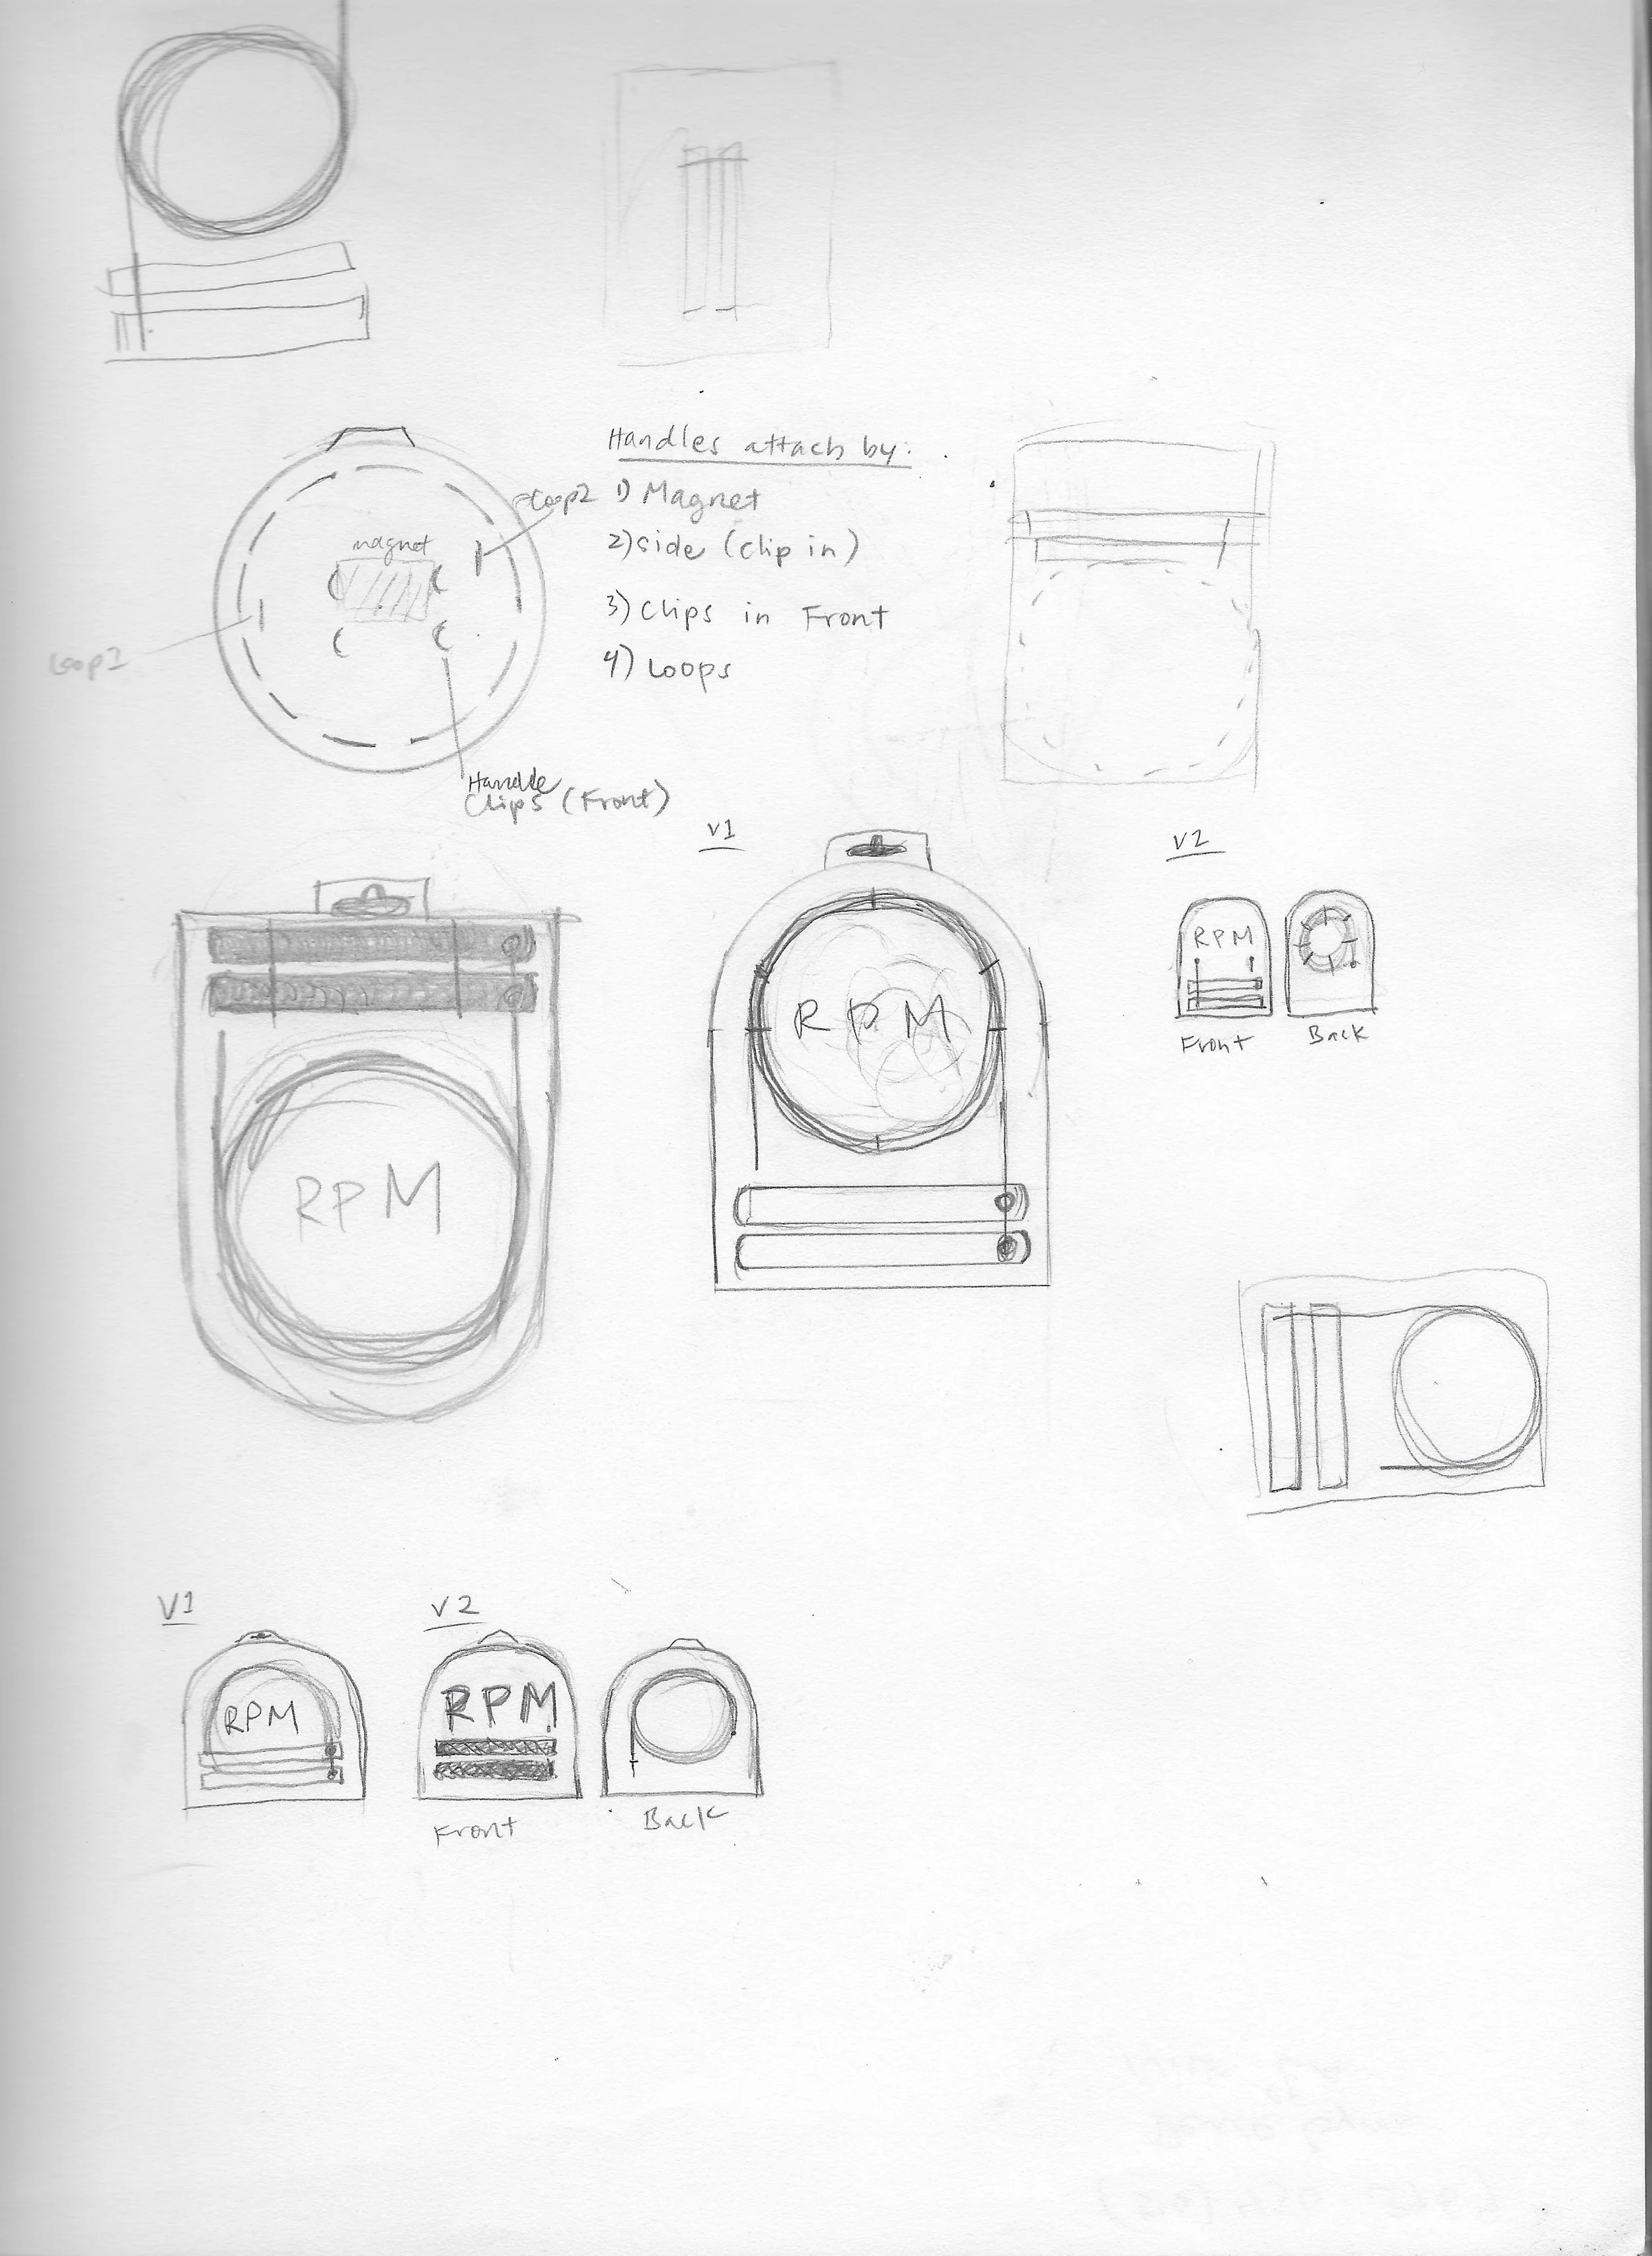 Handles attach by:
Loop2
1) Magnet
2) Side (Clip in)
3) Clips in Front
4) Loops
magnet
Loop1
Handle
Clips (Front)
V1
V2
RPM
RPM
RPM
Front
Back
V1
V2
RPM
RPM
Front
Back